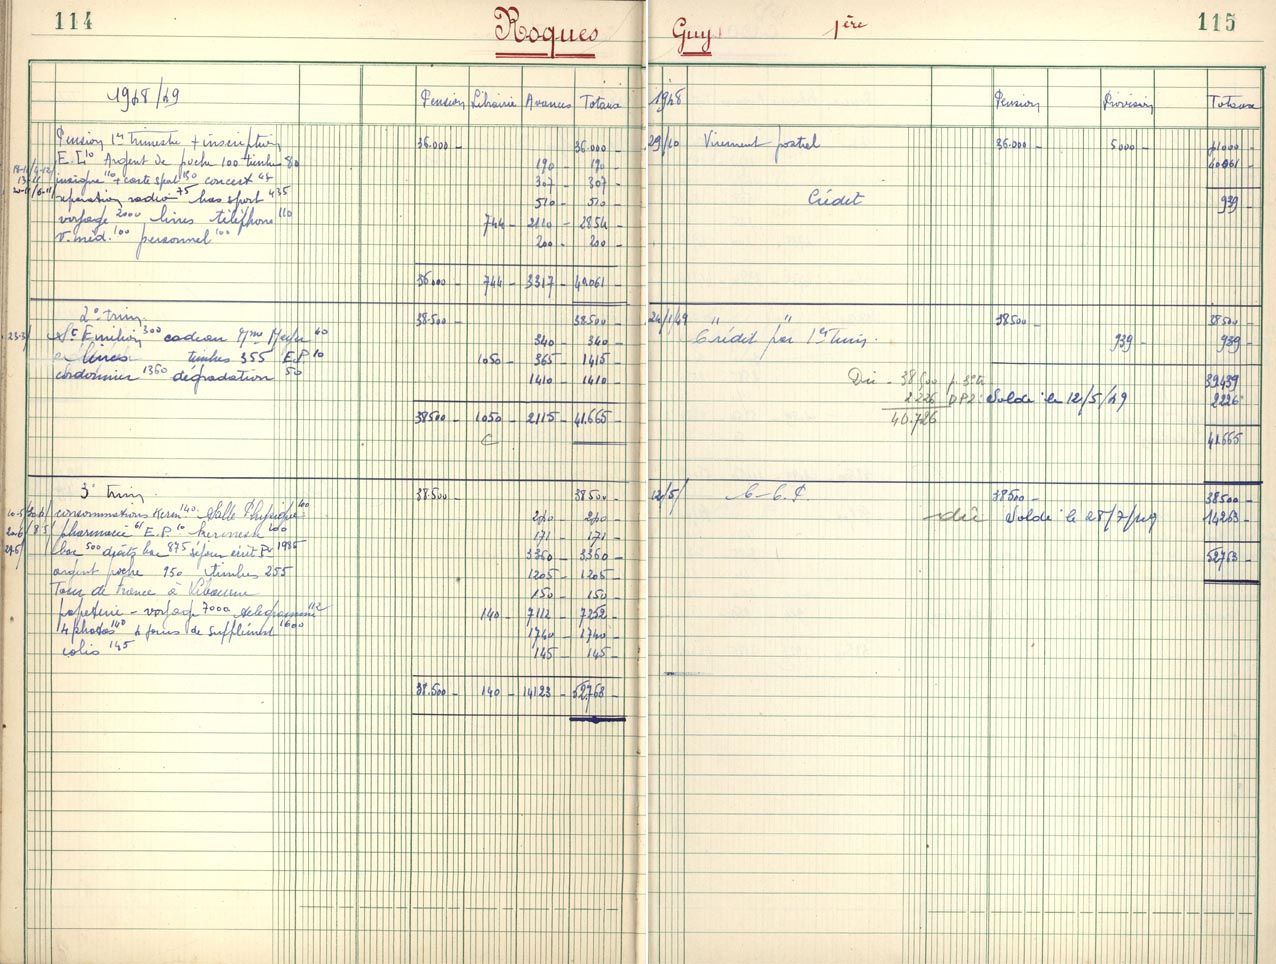 114
Roques
1948/49 Pension Librairie Avances Totaux
Pension 1er trimestre + inscription 36.000 - 36.000 -
E.I 10 Argent de poche 100 timbres 80 190 - 190 -
insigne 110 + carte sport 150 concert 307 - 307 -
reparation radio 75 bas sport 435 510 - 510 -
voyage 2000 livres téléphone 110 744 - 2110 - 2854 -
V. med. 100 personnel 100 200 - 200 -
36.000 - 744 - 3317 - 40.061 -
2e trim. 38.500 - 38.500 -
St Emilion 300 cadeau Mme 40 340 - 340 -
livres timbres 355 E.P 10 1050 - 365 - 1415 -
cordonnier 1360 dégradation 50 1410 - 1410 -
38500 - 1050 - 2115 - 41.665 -
C
3e trim. 38.500 - 38.500 -
consommations 140 Salle Physique
pharmacie 61 E.P. 10 kermesse 100 171 - 171 -
bac 500 droits bac 875 séjour écrit 1985 3360 - 3360 -
argent poche 950 timbres 255 1205 - 1205 -
Tour de France à Libourne 150 - 150 -
papeterie - voyage 7000 telegramme 112 140 - 7112 - 7252 -
14 photos 140 4 jours de supplément 1600 1740 - 1740 -
colis 145 145 - 145 -
38.500 - 140 - 14123 - 52.763 -
Guy 1ère 115
1948 Pension Provision Totaux
29/10 Virement postal 36.000 - 5000 - 41000
40.061
Crédit 939 -
24/1/49 " " 38500 - 38500 -
Crédit par 1er Trim. 939 - 939 -
Dû - 38500 p. 3e tr 39439
2226 DP2: Soldé le 12/5/49 2226
40.726
41.665
12/5/ C.C.P. 38500 - 38500 -
dû Soldé le 28/7/49 14263 -
52763 -